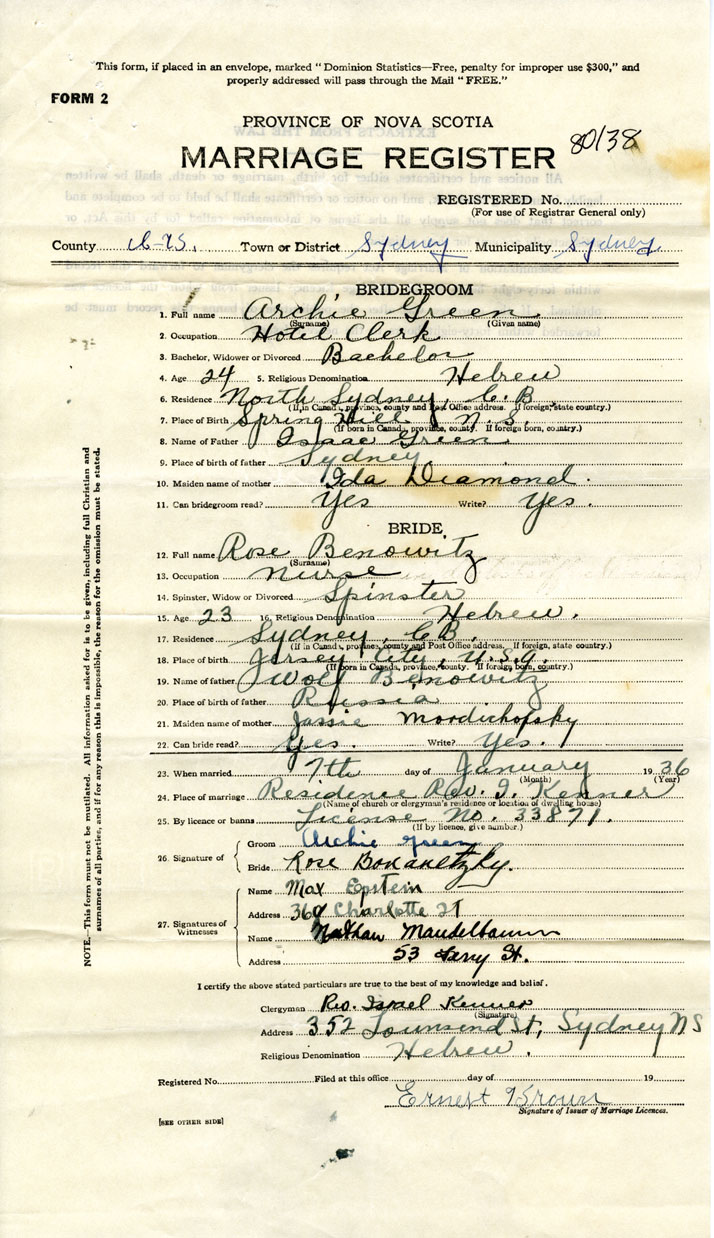 This form, if placed in an envelope, marked "Dominion Statistics—Free, penalty for improper use $300," and
properly addressed will pass through the Mail "FREE."
FORM 2
PROVINCE OF NOVA SCOTIA
MARRIAGE REGISTER 80138
REGISTERED No.
(For use of Registrar General only)
County Town or District Sydney Municipality Sydney
BRIDEGROOM
1. Full name Archie Green
(Surname) (Given name)
2. Occupation Hotel Clerk
3. Bachelor, Widower or Divorced Bachelor
4. Age 24 5. Religious Denomination Hebrew
6. Residence North Sydney, C.B.
(If in Canada, province, county and Post Office address. If foreign, state country.)
7. Place of Birth Spring Hill N.S.
(If born in Canada, province, county. If foreign born, country.)
8. Name of Father Isaac Green
9. Place of birth of father Sydney
10. Maiden name of mother Ida Diamond.
11. Can bridegroom read? Yes Write? Yes.
BRIDE
12. Full name Rose Benowitz
(Surname)
13. Occupation nurse
14. Spinster, Widow or Divorced Spinster
15. Age 23 16. Religious Denomination Hebrew.
17. Residence Sydney, C.B.
(If in Canada, province, county and Post Office address. If foreign, state country.)
18. Place of birth Jersey City, U.S.A.
(If born in Canada, province, county. If foreign born, country.)
19. Name of father Wolf Benowitz
20. Place of birth of father Russia
21. Maiden name of mother Jassie Mordichofsky
22. Can bride read? Yes. Write? Yes.
23. When married 7th day of January 1936
(Month) (Year)
24. Place of marriage Residence Rev. I. Kenner
(Name of church or clergyman's residence or location of dwelling house)
25. By licence or banns License No. 33871.
(If by licence, give number.)
26. Signature of
Groom Archie Green
Bride Rose Bonanetzky.
27. Signatures of Witnesses
Name Max Epstein
Address 369 Charlotte St
Name Nathan Mandelbaum
Address 53 Ferry St.
I certify the above stated particulars are true to the best of my knowledge and belief.
Clergyman Rev. Israel Kenner
(Signature)
Address 352 Townsend St, Sydney NS
Religious Denomination Hebrew.
Registered No. Filed at this office day of 19
Ernest Brown
Signature of Issuer of Marriage Licences.
[SEE OTHER SIDE]
NOTE.—This form must not be mutilated. All information asked for is to be given, including full Christian and
surnames of all parties, and if for any reason this is impossible, the reason for the omission must be stated.